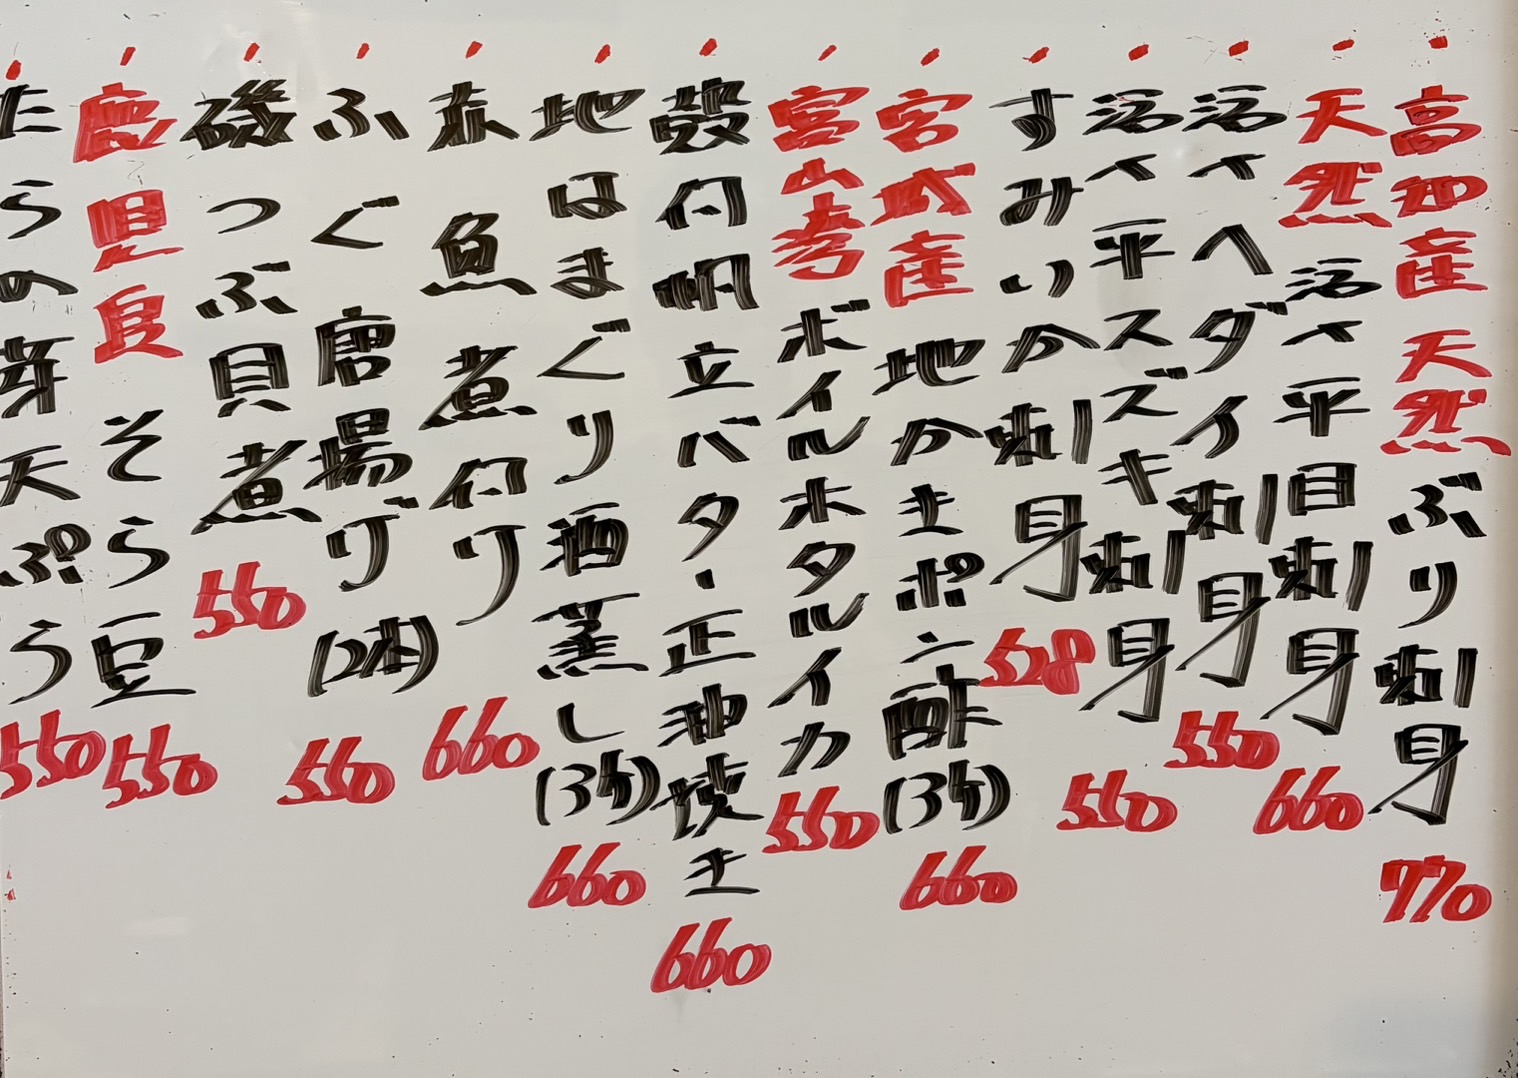 高知産天然ぶり刺身 770
天然活〆平目刺身 660
活〆へダイ刺身 550
活〆平スズキ刺身 550
すみいか刺身 528
宮城産地かきポン酢(3ケ) 660
富山産ボイルホタルイカ 550
殻付帆立バター正油焼き 660
地はまぐり酒蒸し(3ケ) 660
赤魚煮付け 660
ふぐ唐揚げ(2本) 550
磯つぶ貝煮 550
鹿児島そら豆 550
たらの芽天ぷら 550